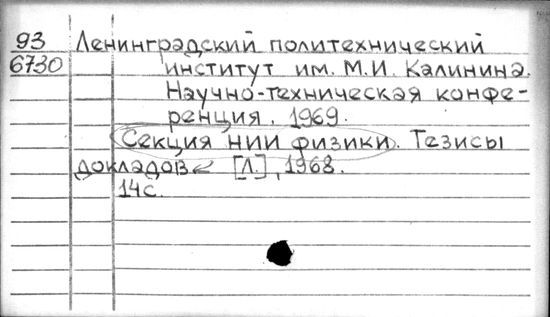 93 Ленинградский политехнический
6730 институт им. М.И. Калинина.
Научно-техническая конфе-
ренция. 1969.
Секция НИИ физики. Тезисы
докладов [Л.], 1968.
14с.